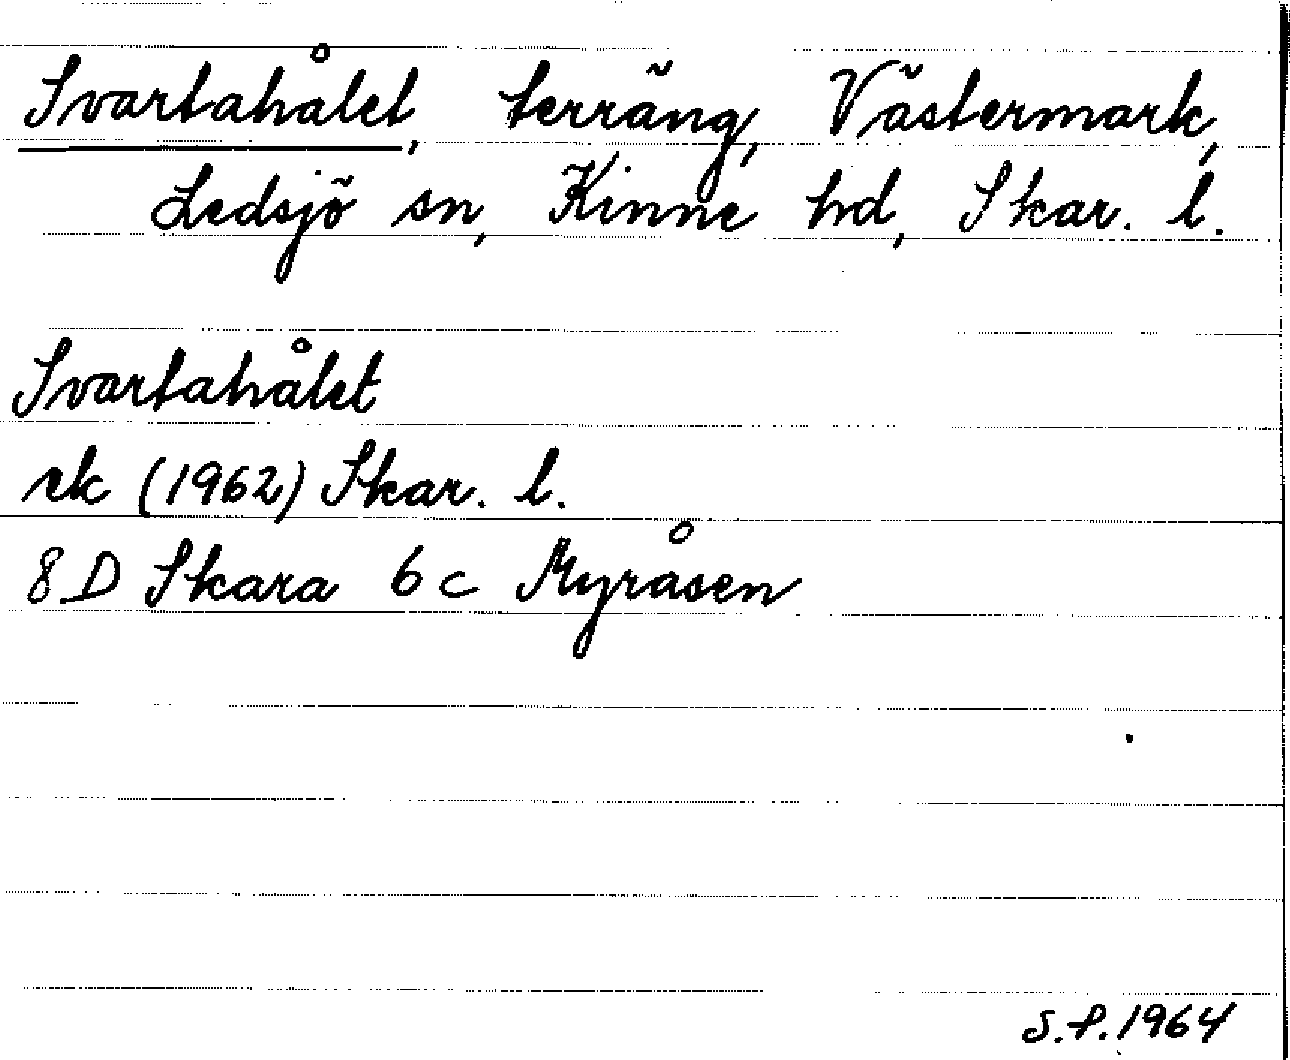 Svartahålet, terräng, Västermark,
Ledsjö sn, Kinne hd, Skar. l.
Svartahålet
ek (1962) Skar. l.
8D Skara 6c Myråsen
S.P. 1964